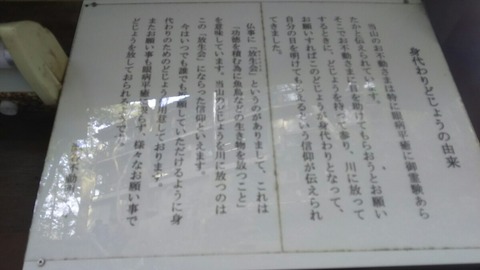 身代わりどじょうの由来
当山のお不動さまは特に眼病平癒に御霊験あら
たかと伝えられています。
そこでお不動さまに目を助けてもらおうとお願い
するときに、どじょうを持って参り、川に放って
お願いすればこのどじょうが身代わりとなって、
自分の目を明けてもらえるという信仰が伝えられ
てきました。
仏事に「放生会」というのがありまして、これは
「功徳を積む為に魚鳥などの生き物を放つこと」
を意味しています。当山のどじょうを川に放つのは
この「放生会」にならった信仰といえます。
今はいつでも誰でも祈願していただけるように身
代わりのためのどじょうを用意しております。
またお願い事も眼病平癒に限らず、様々なお願い事で
どじょうを放しておられるようです。